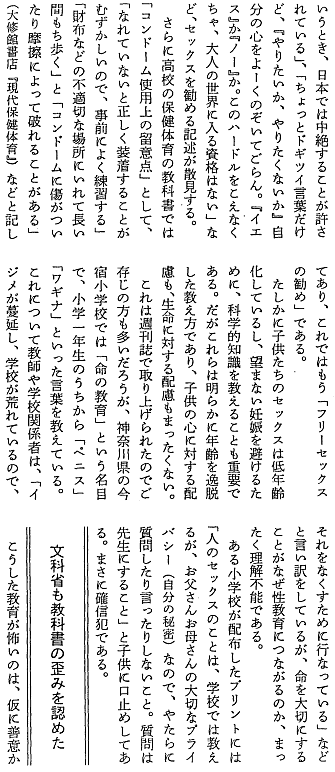 いうとき、日本では中絶することが許さ
れている」、「ちょっとドギツイ言葉だけ
ど、『やりたいか、やりたくないか』自
分の心をよーくのぞいてごらん。『イエ
ス』か『ノー』か。このハードルをこえなく
ちゃ、大人の世界に入る資格はない」な
ど、セックスを勧める記述が散見する。
さらに高校の保健体育の教科書では
「コンドーム使用上の留意点」として、
「なれていないと正しく装着することが
むずかしいので、事前によく練習する」
「財布などの不適切な場所にいれて長い
間もち歩く」と「コンドームに傷がつい
たり摩擦によって破れることがある」
（大修館書店『現代保健体育』）などと記し
てあり、これではもう「フリーセックス
の勧め」である。
たしかに子供たちのセックスは低年齢
化しているし、望まない妊娠を避けるた
めに、科学的知識を教えることも重要で
ある。だがこれらは明らかに年齢を逸脱
した教え方であり、子供の心に対する配
慮も、生命に対する配慮もまったくない。
これは週刊誌で取り上げられたのでご
存じの方も多いだろうが、神奈川県の今
宿小学校では「命の教育」という名目
で、小学一年生のうちから「ペニス」
「ワギナ」といった言葉を教えている。
これについて教師や学校関係者は、「イ
ジメが蔓延し、学校が荒れているので、
それをなくすために行なっている」など
と言い訳をしているが、命を大切にする
ことがなぜ性教育につながるのか、まっ
たく理解不能である。
ある小学校が配布したプリントには
「人のセックスのことは、学校では教え
るが、お父さんお母さんの大切なプライ
バシー（自分の秘密）なので、やたらに
質問したり言ったりしないこと。質問は
先生にすること」と子供に口止めしてあ
る。まさに確信犯である。
文科省も教科書の歪みを認めた
こうした教育が怖いのは、仮に善意か